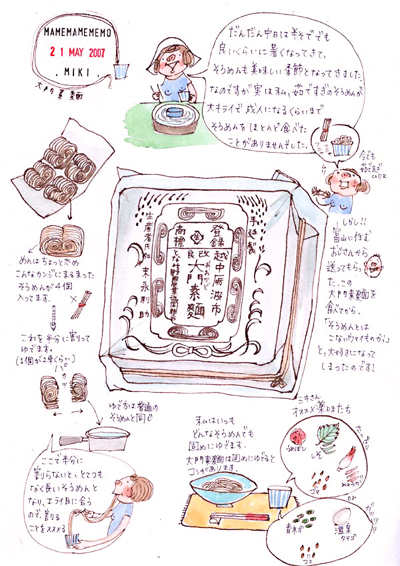 MAMEMAMEMEMO
21 MAY 2007
.MIKI
大門素麺
だんだん中日は半そででも
良いくらいに暑くなってきて、
そうめんも美味しい季節となってきました。
なのですが実はオム、茹ですぎのそうめんが
大キライで、成人になるくらいまで
そうめんをほとんど食べた
ことがありませんでした。
今でも
しかし!!
富山に住む
おじさんから
送ってもらっ
た、この
大門素麺を
食べてから、
「そうめんとは
こないウマイものか!」
と、大好きになって
しまったのです!
登録
商標
越中砺波市
改良
大門素麺
末永利助
めんはちょっと太め
こんなカンジにまるまった
そうめんが4個
入ってます。
これを半分に割って
ゆでます。
(1個が2束くらい)
パカッ
ゆで方は普通の
そうめんと同じ
ここで半分に
割らないと、とてつも
なく長いそうめんと
なり、エライ目に合う
ので、割る
ことをススメる
オムはいつも
どんなそうめんでも
固めにゆでます。
大門素麺は固めにゆでると
コシがあります。
ミキさん
オススメ薬味たち
うめぼし
しそ
みょうが
ゴマ
or
青ネギ
温泉
タマゴ
ゴマ